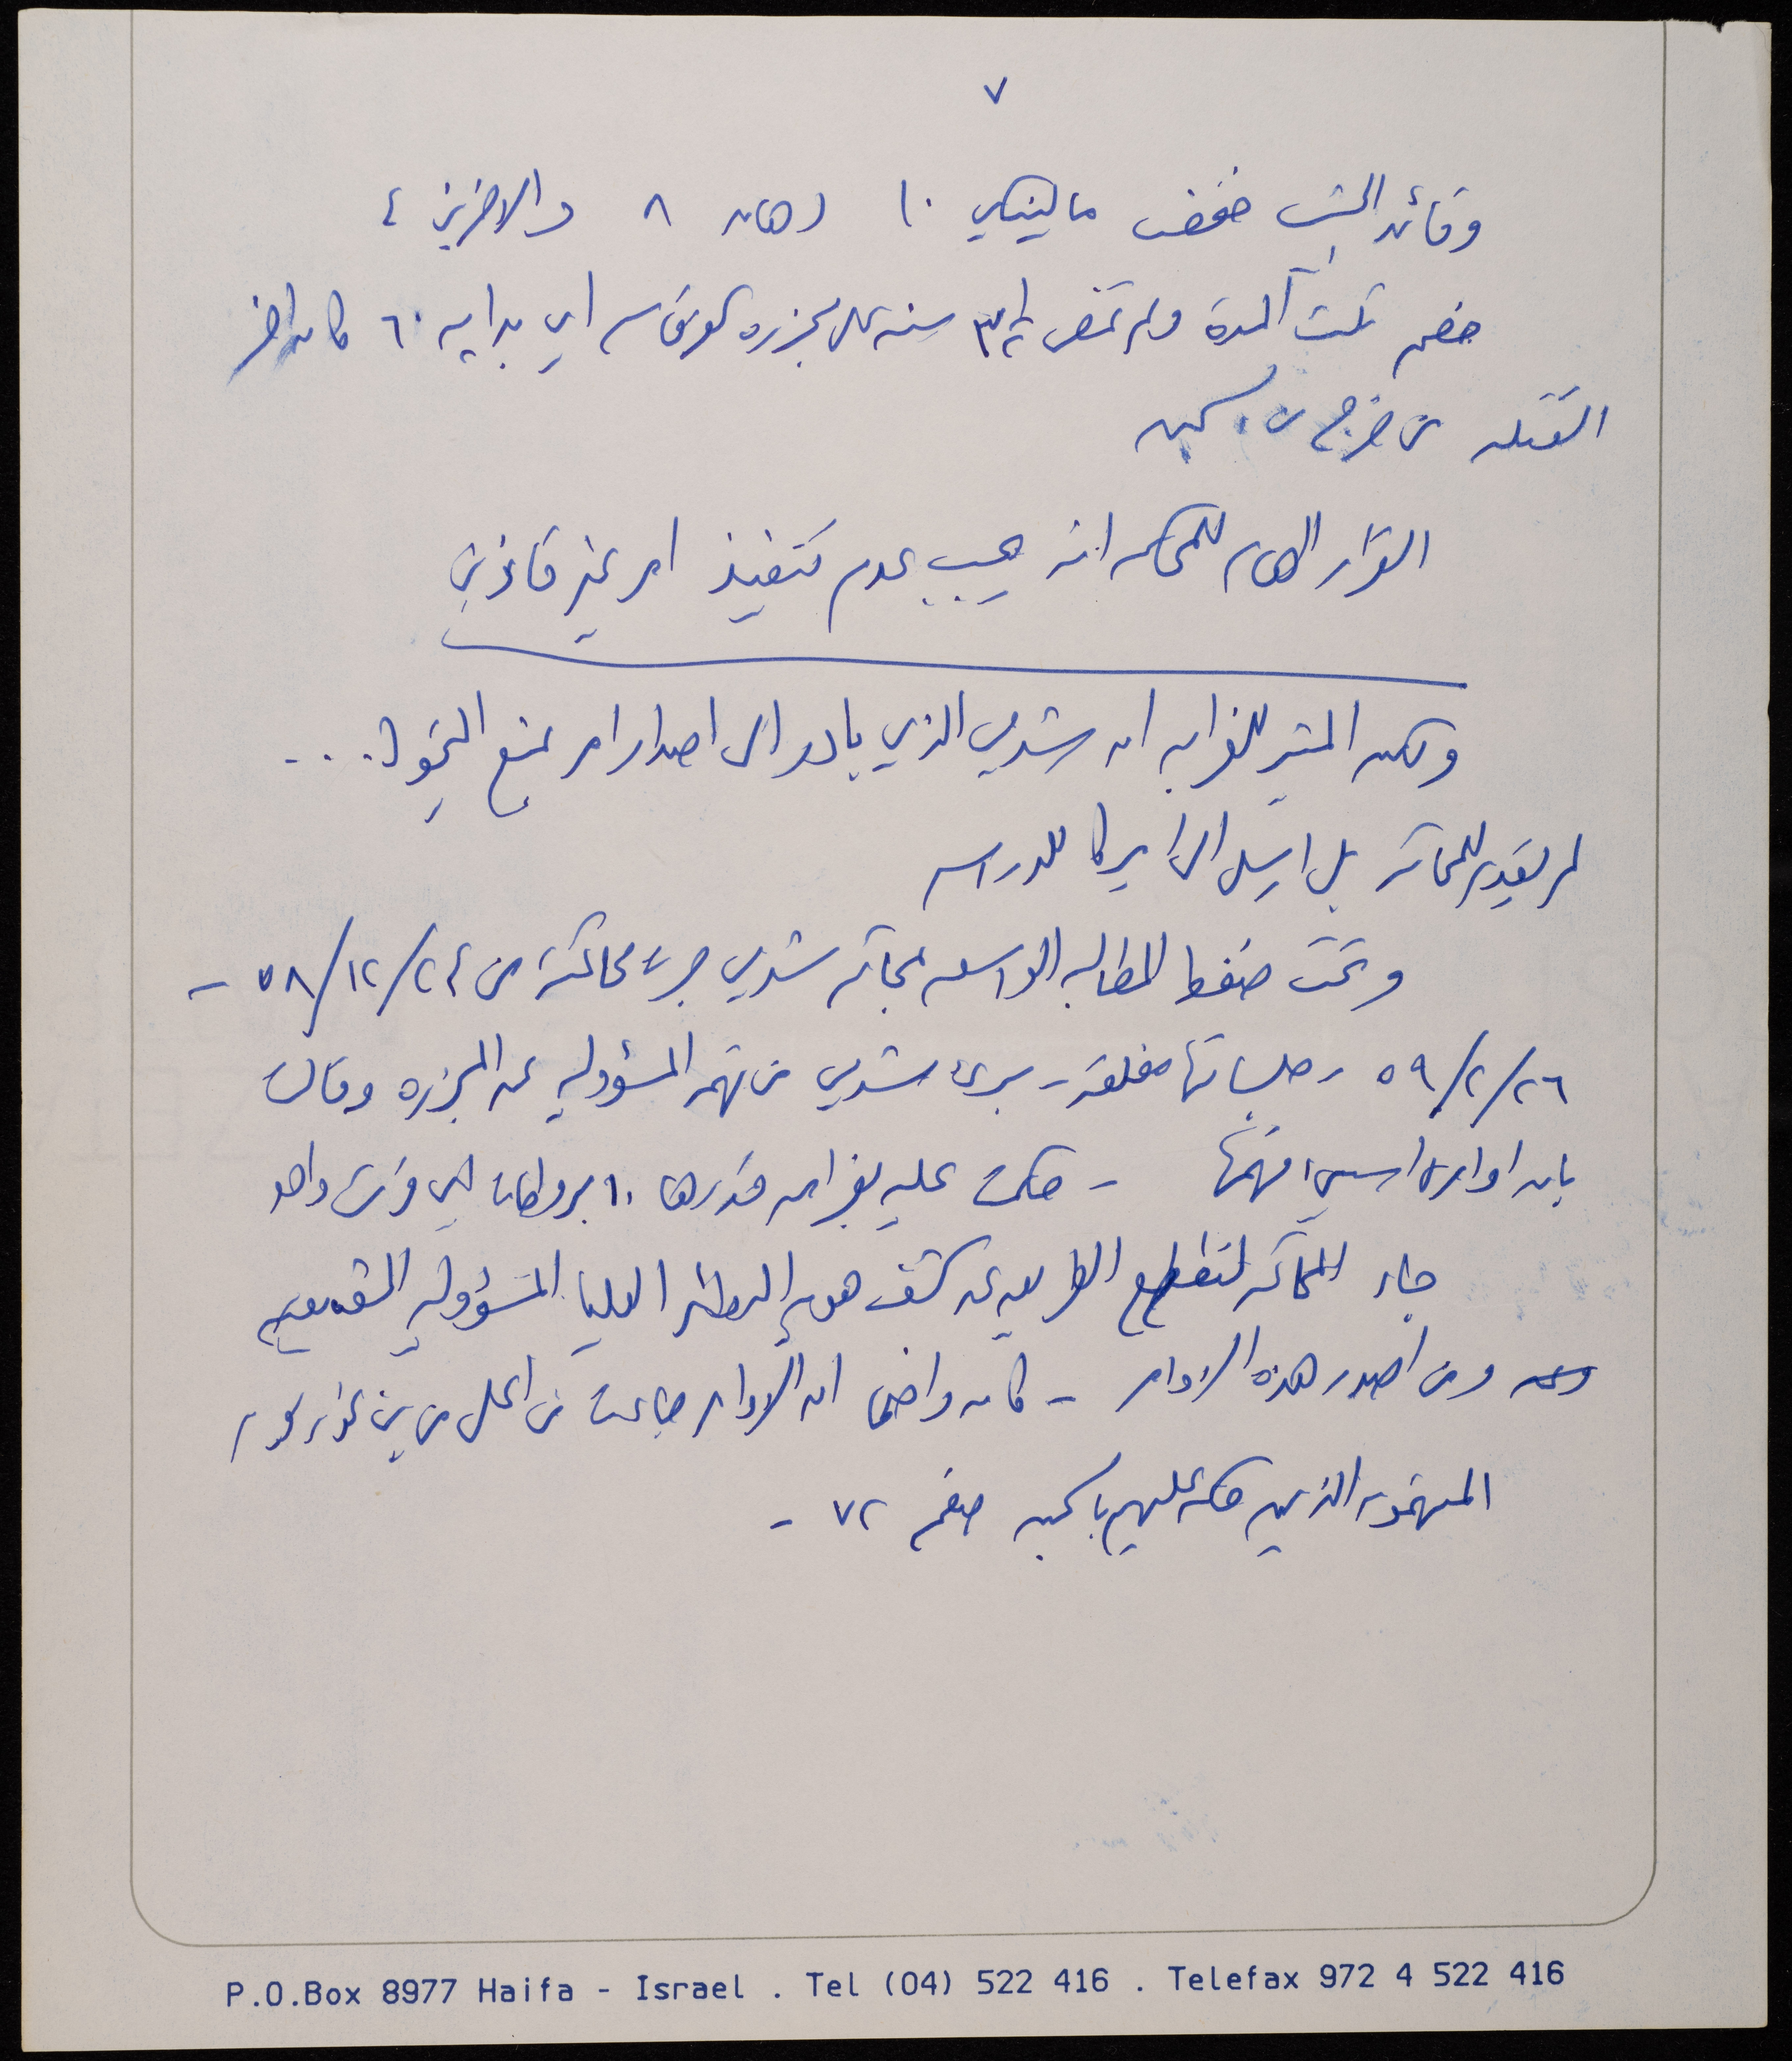 ٧
وقائد الجيش خفض مالينكي ١٠ دهان ٨ والاخرين ٤
خفض ثلث المدة ولم تمض ٣ سنه على مجزرة كفرقاسم اي بدايه ٦٠ كان اخر
القتله من خرج من السجن
القرار الهام للمحكمه انه يجب عدم تنفيذ امر غير قانوني
ولكن المثير للغرابه ان شدمي الذي بادر الى اصدار امر منع التجول . . .
لم يقدم للمحاكمه بل ارسل الى امريكا للدراسه
وتحت ضغط المطالبه الواسعه بمحاكمة شدمي جرت محاكمته من ٢٤/١٢/٥٨ -
٢٦/٢/٥٩ وجلساتها مغلقه - برئ شدمي من تهمة المسؤوليه عن المجزره وقالت
بان اوامره اسيئ فهمها - حكمت عليه بغرامه قدرها ١٠ بروطات اي قرش واحد
جاء المحاكمه لتقطع الطريق عن كشف هويه المراتب العليا المسؤوليه
ومن اصدر هذه الاوامر - كان واضحا ان الاوامر جاءت من اعلى من بن غوريون
المتهمون الذين حكم عليهم بالسجن صفحه ٧٢ -
P.O.Box 8977 Haifa - Israel . Tel (04) 522 416 . Telefax 972 4 522 416